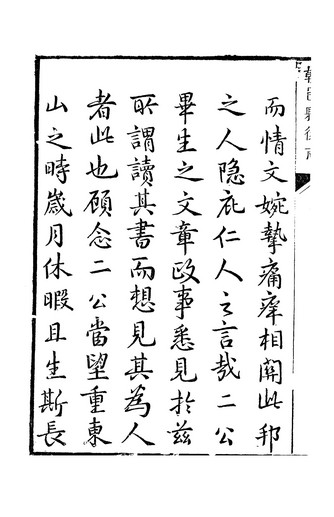 而情文婉摯痛癢相關此邦
之人隐庇仁人之言哉二公
畢生之文章政事悉見於茲
所謂讀其書而想見其為人
者此也顧念二公當望重東
山之時歲月休暇且生斯長